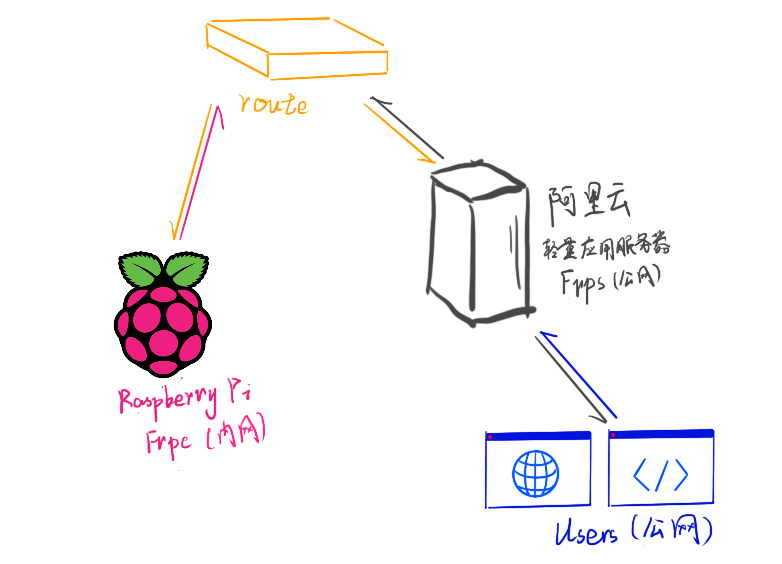 route
阿里云
轻量应用服务器
Frps (公网)
Raspberry Pi
Frpc (内网)
</>
Users (公网)